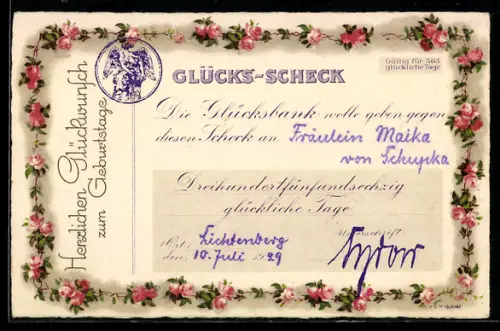 Herzlichen Glückwunsch
zum Geburtstage
GLÜCKS-SCHECK
Gültig für 365
glückliche Tage
Die Glücksbank wolle geben gegen
diesen Scheck an Fräulein Maika
von Tchupka
Dreihundertfünfundsechzig
glückliche Tage
Unterschrift
Ort: Lichtenberg
den, 10. Juli 1929